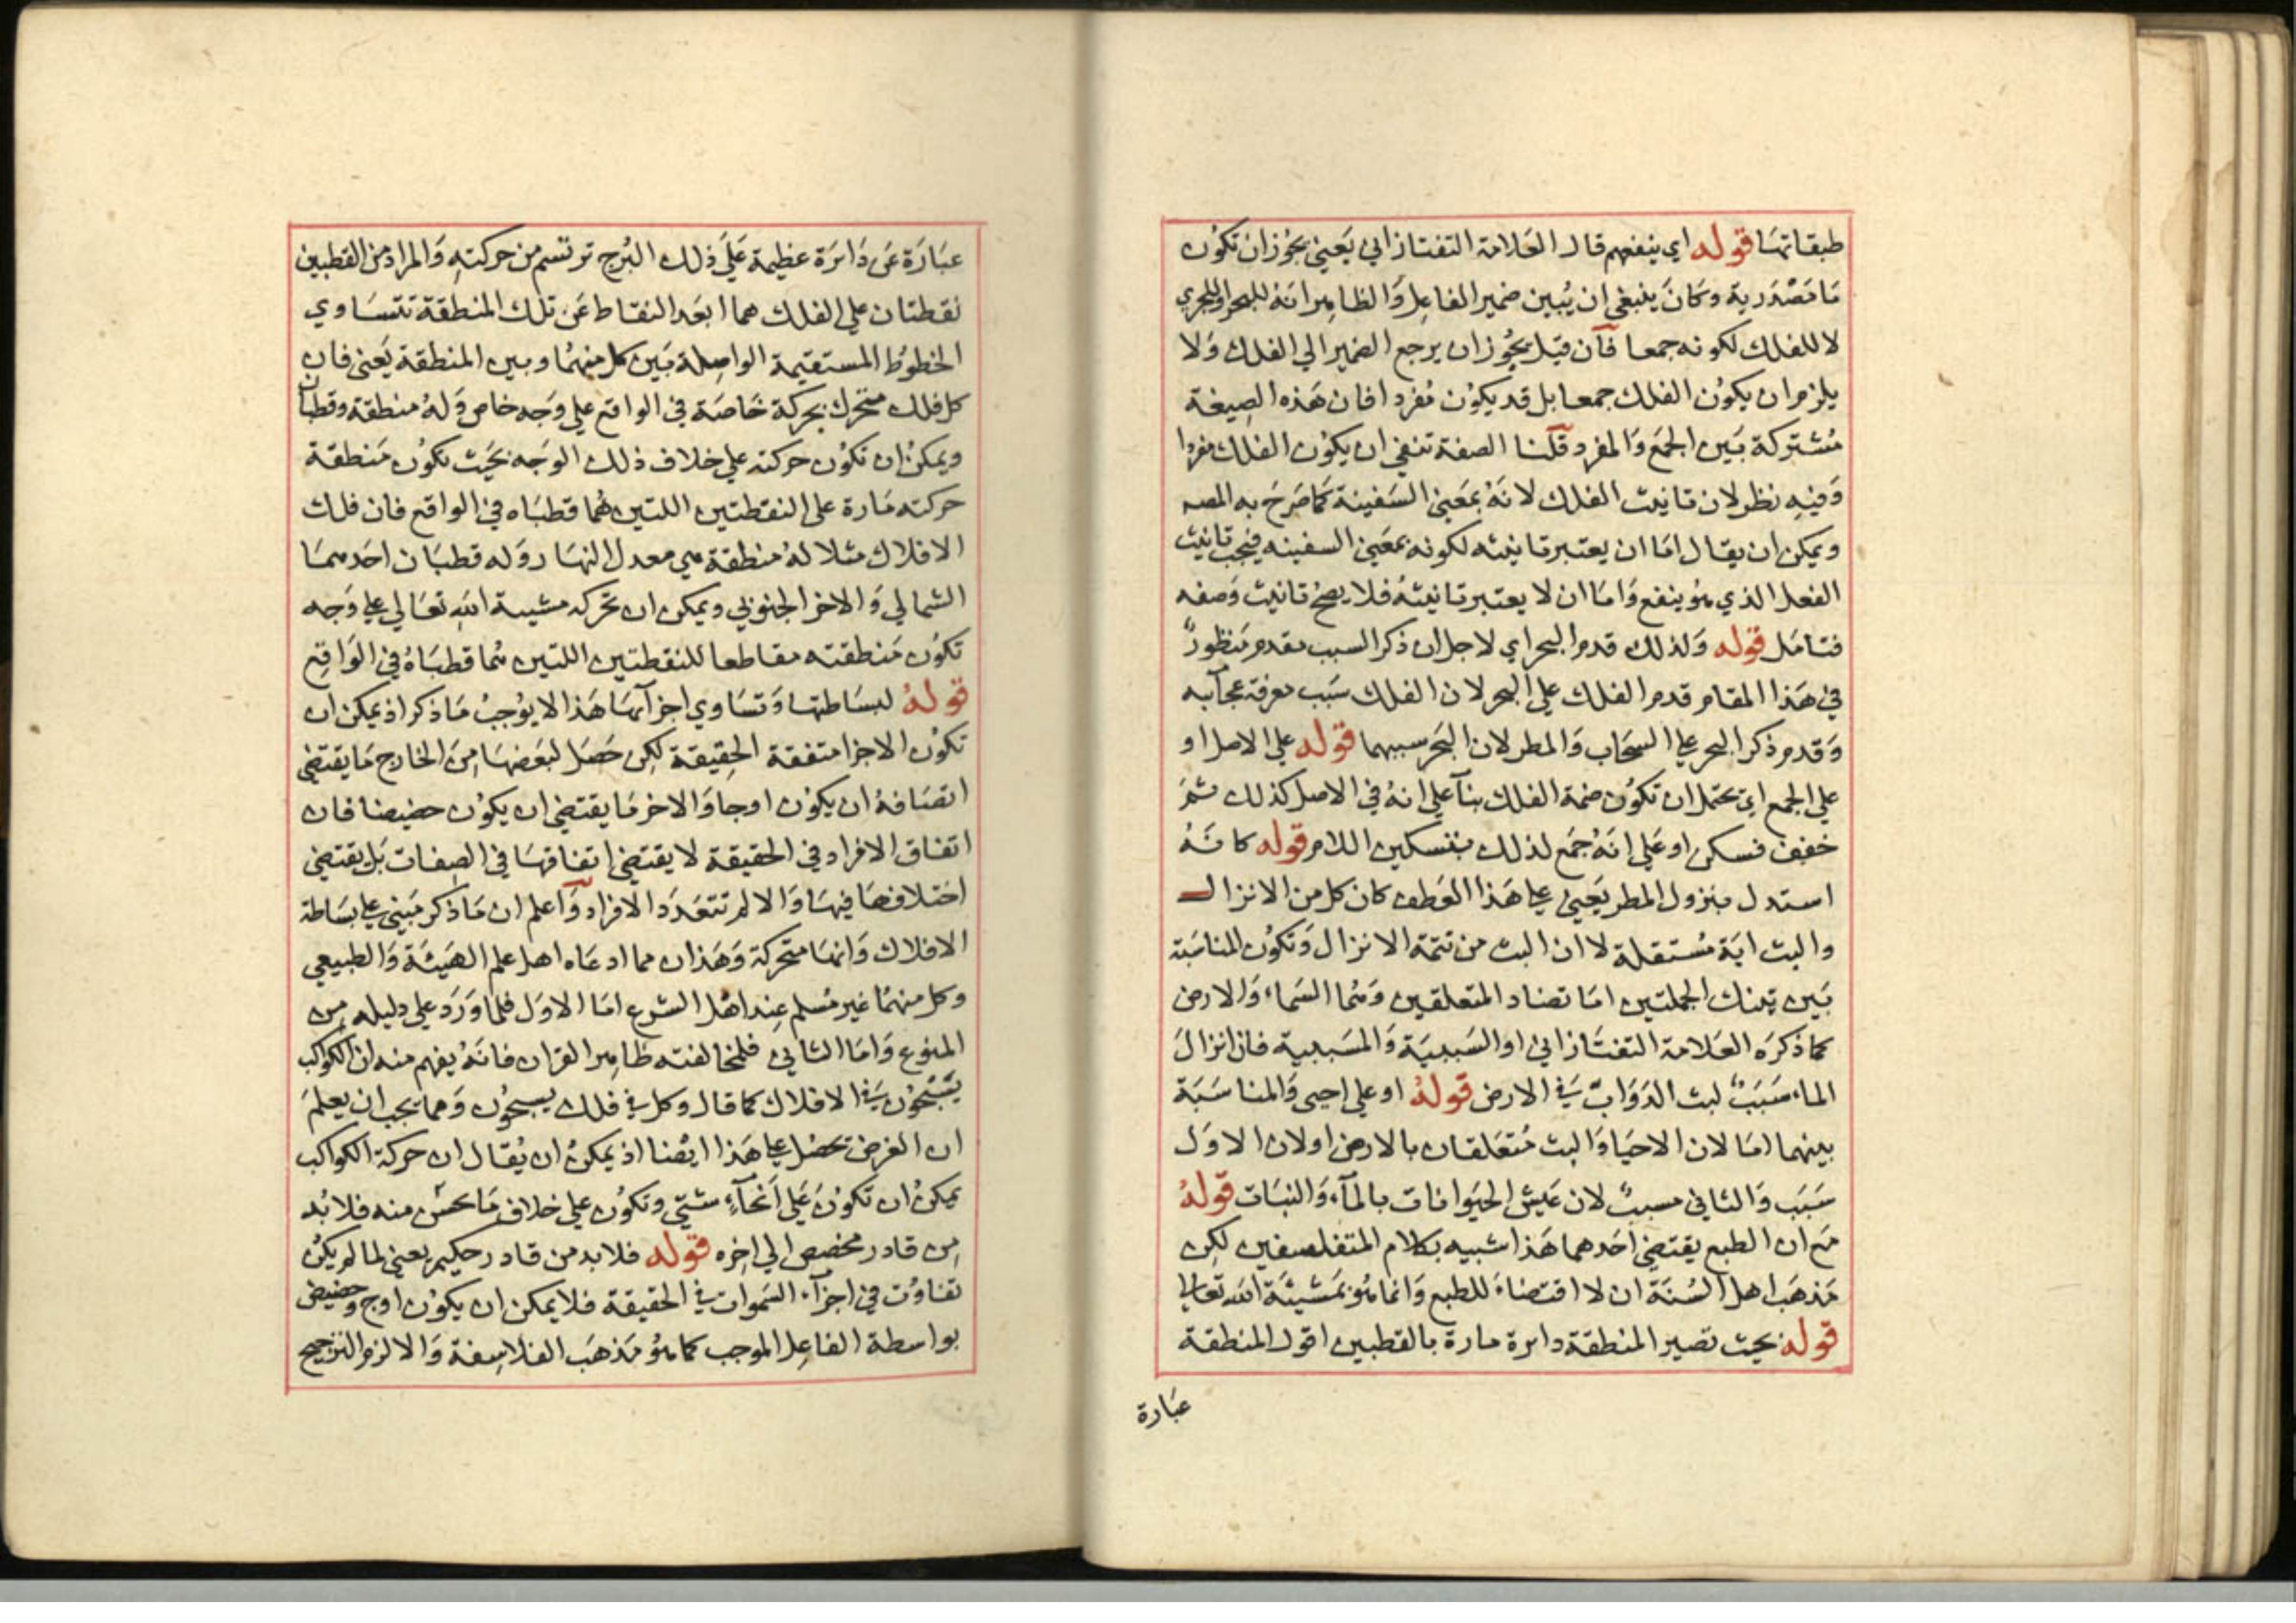 طبقاتها قوله اي ينفعهم قال العلامة التفتازاني يعني يجوز ان تكون
ما مصدرية وكان ينبغي ان يبين ضمير الفاعل والظاهر انه للبحر او للجري
لا للفلك لكونه جمعا فان قيل يجوز ان يرجع الضمير الي الفلك ولا
يلزم ان يكون الفلك جمعا بل قد يكون مفردا فان هذه الصيغة
مشتركة بين الجمع والمفرد قلنا الصفة تنفي ان يكون الفلك مفردا
وفيه نظر لان تانيث الفلك لانه بمعني السفينة كما صرح به المصه
ويمكن ان يقال اما ان يعتبر تانيثه لكونه بمعني السفينه فيجب تانيث
الفعل الذي هو ينفع واما ان لا يعتبر تانيثه فلا يصح تانيث وصفه
فتامل قوله ولذلك قدم البحر اي لاجل ان ذكر السبب مقدم منظور
في هذا المقام قدم الفلك علي البحر لان الفلك سبب معرفة عجآيبه
وقدم ذكر البحر علي السحاب والمطر لان البحر سببهما قوله علي الاصل او
علي الجمع اي يحتمل ان تكون ضمة الفلك بنآ علي انه في الاصل كذلك ثم
خفف فسكن او علي انه جمع لذلك بتسكين اللام قوله كانه
استدل بنزول المطر يعني علي هذا العطف كان كل من الانزال
والبث اية مستقلة لا ان البث من تتمة الانزال وتكون المناسبة
بين تينك الجملتين اما تضاد المتعلقين وهما السماء والارض
كما ذكره العلامة التفتازاني او السببية والمسببية فان انزال
الماء سبب لبث الدواب في الارض قوله او علي احيي والمناسبة
بينهما اما لان الاحيا والبث متعلقان بالارض او لان الاول
سبب والثاني مسبب لان عيش الحيوانات بالمآء والنبات قوله
مع ان الطبع يقتضي احدهما هذا شبيه بكلام المتفلسفين لكن
مذهب اهل السنة ان لا اقتضاء للطبع وانما هو بمشيئة الله تعالي
قوله بحيث تصير المنطقة دايرة مارة بالقطبين اقول المنطقة
عبارة
عبارة عن دائرة عظيمة علي ذلك البرج ترتسم من حركته والمراد من القطبين
نقطتان علي الفلك هما ابعد النقاط عن تلك المنطقة تتساوي
الخطوط المستقيمة الواصلة بين كل منهما وبين المنطقة يعني فان
كل فلك متحرك بحركة خاصة في الواقع علي وجه خاص وله منطقة وقطبان
ويمكن ان تكون حركته علي خلاف ذلك الوجه بحيث تكون منطقة
حركته مارة علي النقطتين اللتين هما قطباه في الواقع فان فلك
الافلاك مثلا له منطقة هي معدل النهار وله قطبان احدهما
الشمالي والاخر الجنوبي ويمكن ان تحركه مشيية الله تعالي علي وجه
تكون منطقته مقاطعا للنقطتين اللتين هما قطباه في الواقع
قوله لبساطتها وتساوي اجزآئها هذا لا يوجب ما ذكر اذ يمكن ان
تكون الاجزا متفقة الحقيقة لكن حصل لبعضها من الخارج ما يقتضي
اتصافه ان يكون اوجا والاخر ما يقتضي ان يكون حضيضا فان
اتفاق الافراد في الحقيقة لا يقتضي اتفاقها في الصفات بل يقتضي
اختلافها فيها والا لم تتعدد الافراد واعلم ان ما ذكر مبني علي بساطة
الافلاك وانها متحركة وهذان مما ادعاه اهل علم الهيئة والطبيعي
وكل منهما غير مسلم عند اهل الشرع اما الاول فلما ورد علي دليله من
المنوع واما الثاني فلمخالفته ظاهر القران فانه يفهم منه ان الكواكب
يسبحون في الافلاك كما قال وكل في فلك يسبحون ومما يجب ان يعلم
ان الغرض يحصل علي هذا ايضا اذ يمكن ان يقال ان حركة الكواكب
يمكن ان تكون علي انحآء شتي وتكون علي خلاف ما يحس منه فلا بد
من قادر مخصص الي اخره قوله فلا بد من قادر حكيم يعني لما لم يكن
تفاوت في اجزآء السموات في الحقيقة فلا يمكن ان يكون اوج وحضيض
بواسطة الفاعل الموجب كما هو مذهب الفلاسفة والا لزم الترجيح